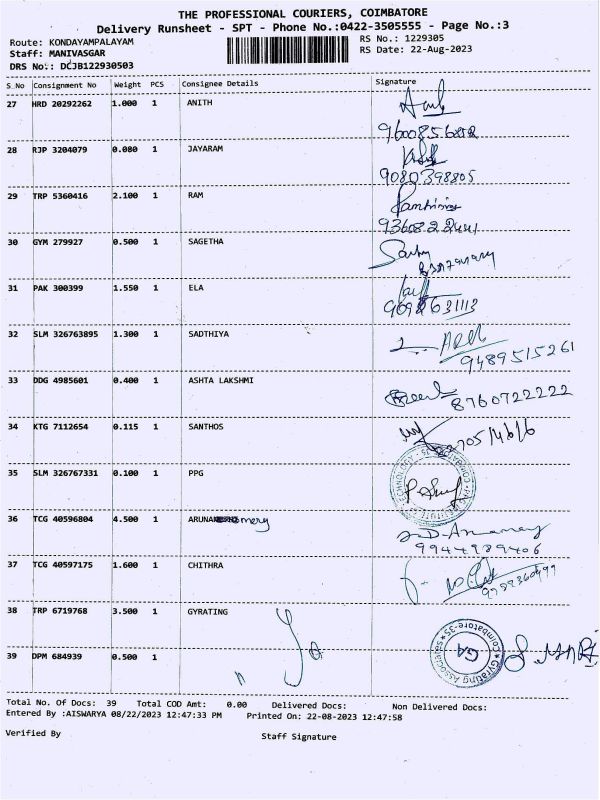 THE PROFESSIONAL COURIERS, COIMBATORE
Delivery Runsheet - SPT - Phone No.:0422-3505555 - Page No.:3
Route: KONDAYAMPALAYAM RS No.: 1229305
Staff: MANIVASGAR RS Date: 22-Aug-2023
DRS No.: DCJB122930503
S.No Consignment No Weight PCS Consignee Details Signature
27 HRD 20292262 1.000 1 ANITH
9600856802
28 RJP 3204079 0.080 1 JAYARAM
9080398805
29 TRP 5360416 2.100 1 RAM
30 GYM 279927 0.500 1 SAGETHA
31 PAK 300399 1.550 1 ELA
32 SLM 326763895 1.300 1 SADTHIYA
9489515261
33 DDG 4985601 0.400 1 ASHTA LAKSHMI
8760722222
34 KTG 7112654 0.115 1 SANTHOS
35 SLM 326767331 0.100 1 PPG
36 TCG 40596804 4.500 1 ARUNA
9944989406
37 TCG 40597175 1.600 1 CHITHRA
38 TRP 6719768 3.500 1 GYRATING
Gyrating Associates Coimbatore-35
GA
39 DPM 684939 0.500 1
Total No. Of Docs: 39 Total COD Amt: 0.00 Delivered Docs: Non Delivered Docs:
Entered By :AISWARYA 08/22/2023 12:47:33 PM Printed On: 22-08-2023 12:47:58
Verified By Staff Signature